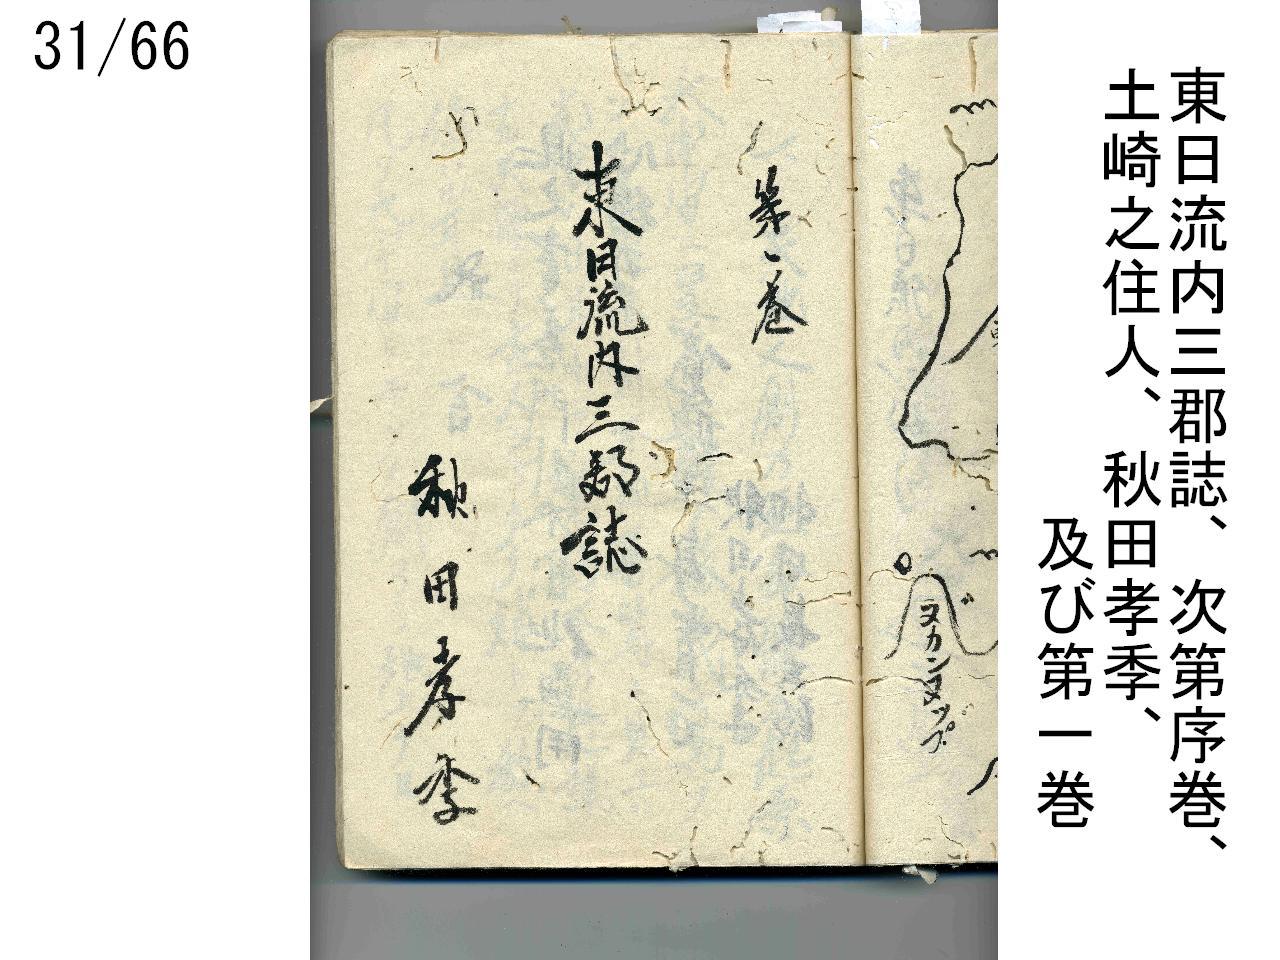 31/66
東日流内三郡誌、次第序巻、
土崎之住人、秋田孝季、
及び第一巻
ヌカンヌップ
第一巻
東日流内三郡誌
秋田孝季